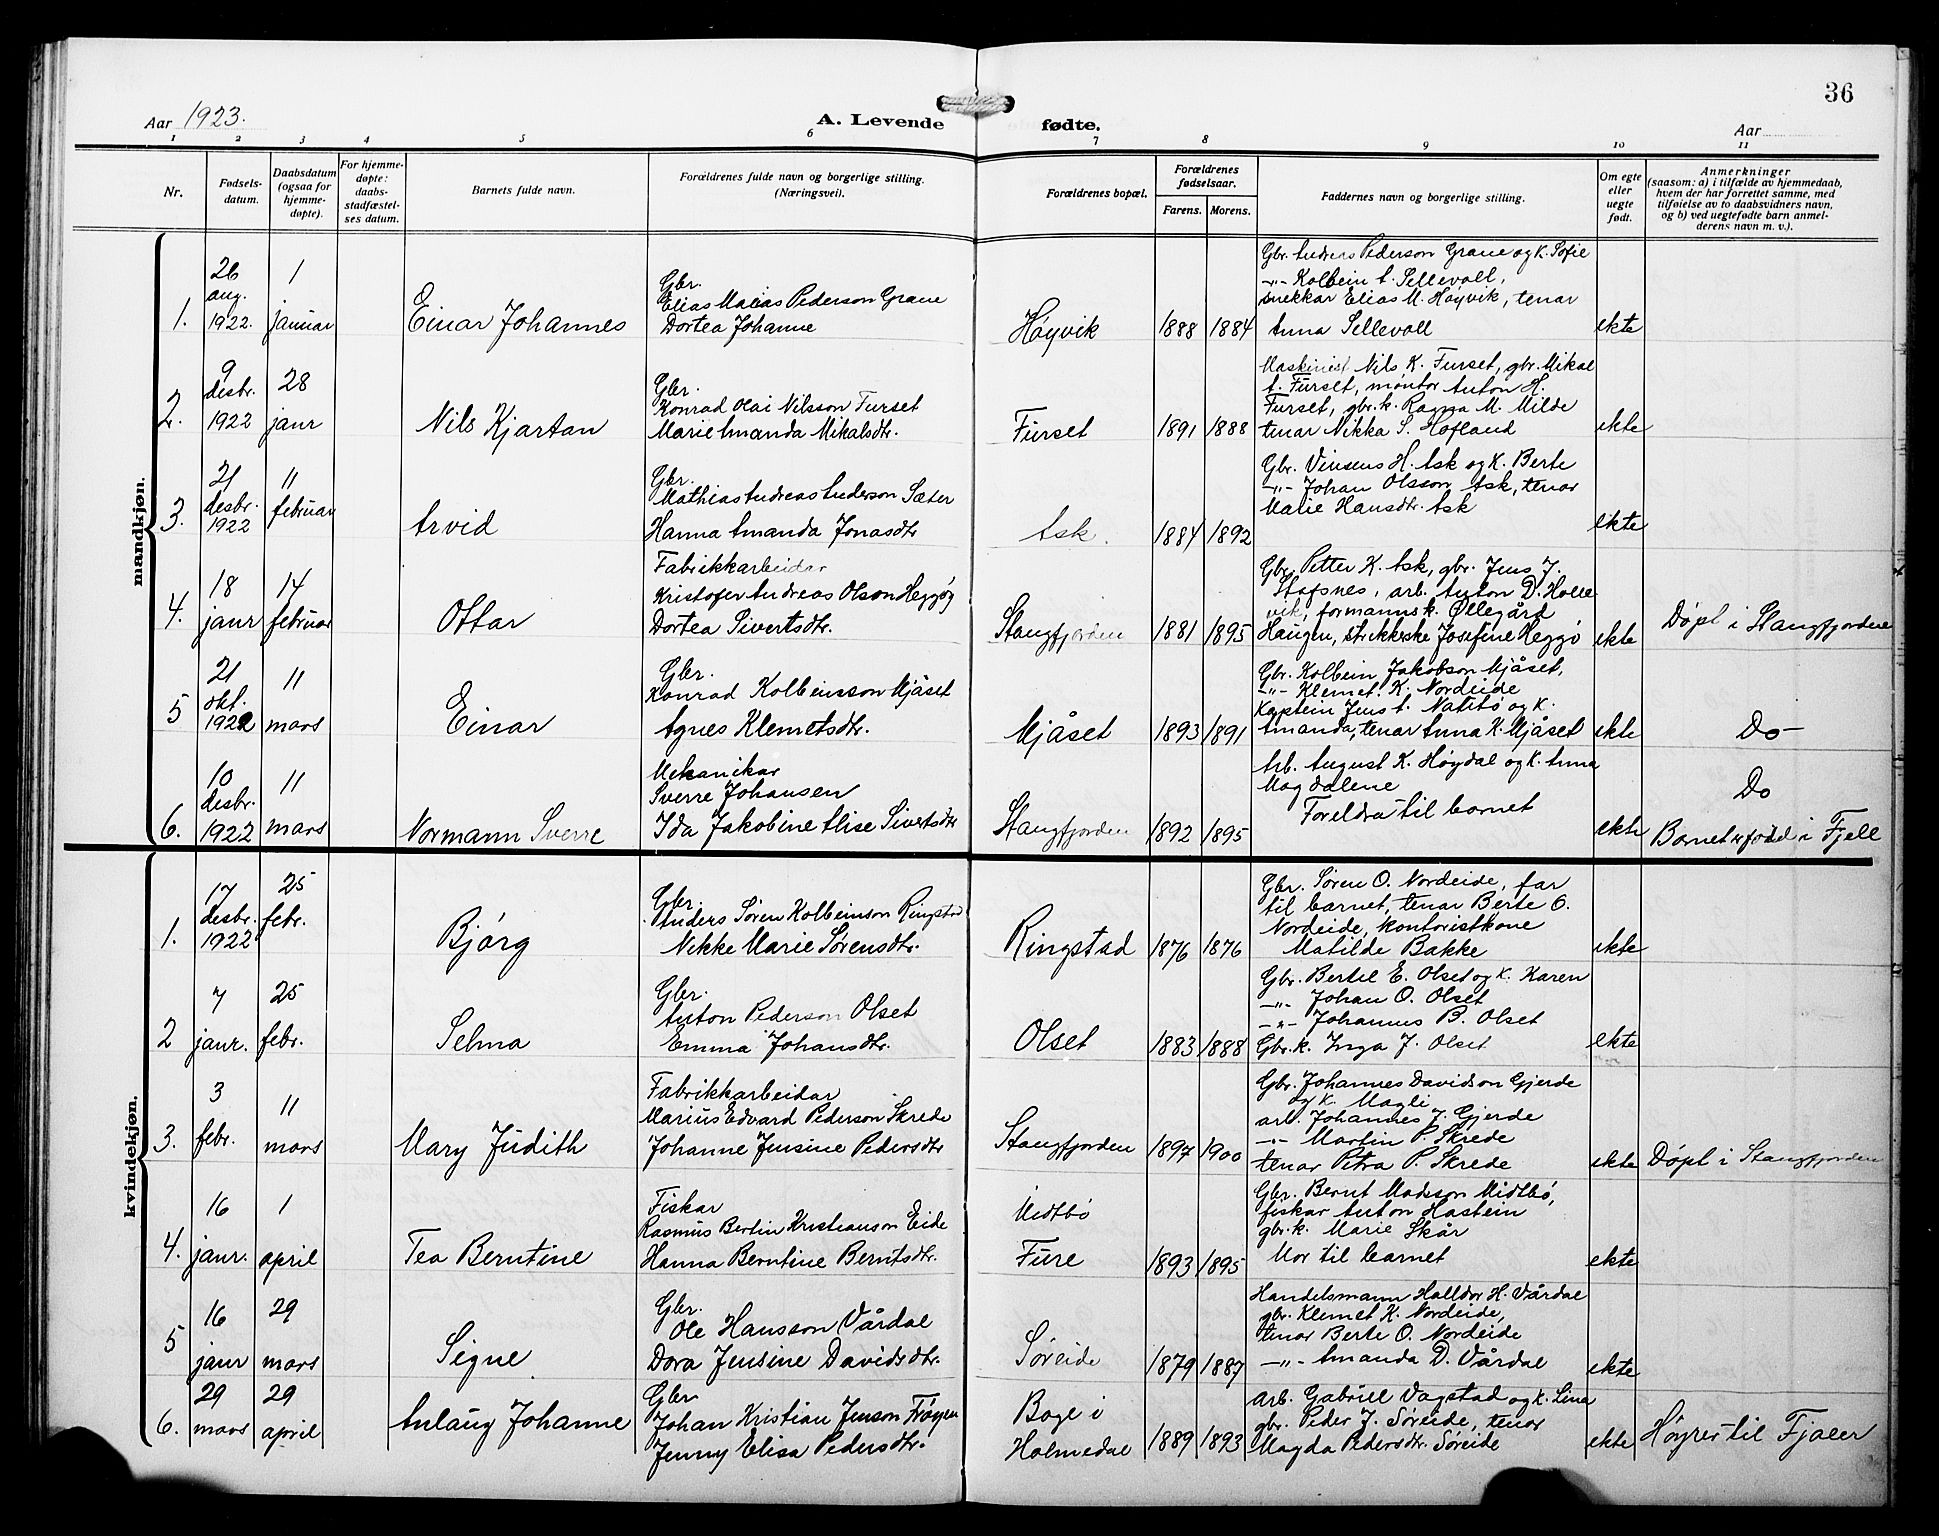 36
Aar 1923.
A. Levende fødte.
Aar
1 2 3 4 5 6 7 8 9 10 11
Nr.
Fødsels-
datum.
Daabsdatum
(ogsaa for
hjemme-
døpte).
For hjemme-
døpte:
daabs-
stadfæstel-
ses datum.
Barnets fulde navn.
Forældrenes fulde navn og borgerlige stilling.
(Næringsvei).
Forældrenes bopæl.
Forældrenes
fødselsaar.
Farens. Morens.
Faddernes navn og borgerlige stilling.
Om egte
eller
uegte
født.
Anmerkninger
(saasom: a) i tilfælde av hjemmedaab,
hvem der har forrettet samme, med
tilføielse av to daabsvidners navn,
og b) ved uegtefødte barn anmel-
derens navn m. v.).
mandkjøn.
1.
26
aug.
1922.
1
januar
Einar Johannes
Gbr.
Elias Matias Pederson Grane
Dortea Johanne
Høyvik
1888 1884
Gbr. Andreas Pederson Grane og k. Sofie
-"- Kolbein A. Sellevoll,
snekkar Elias M. Høyvik, tenar
Anna Sellevoll
ekte
2.
9
desbr.
1922
28
janr
Nils Kjartan
Gbr.
Konrad Olai Nilsson Furset
Marie Amanda Mikalsdtr.
Furset
1891 1888
Maskinist Nils K. Furset, gbr. Mikal
A. Furset, montør Anton H.
Furset, gbr.k. Ragna M. Milde
tenar Nikka S. Hofland
ekte
3.
21
desbr.
1922
11
februar
Arvid
Gbr.
Mathias Andreas Anderson Sæter
Hanna Amanda Jonasdtr
Ask.
1884 1892
Gbr. Vinsens H. Ask og k. Berte
-"- Johan Olsson Ask, tenar
Marie Hansdtr. Ask
ekte
4.
18
janr
14
februar
Ottar
Fabrikkarbeidar
Kristofer Andreas Olson Heggøy
Dortea Sivertsdtr.
Stangfjorden
1881 1895
Gbr. Petter K. Ask, gbr. Jens J.
Stafsnes, arb. Anton D. Holle
vik, formannsk. Øllegård
Haugen, strikkerske Josefine Heggø
ekte
Døpt i Stangfjorden
5
21
okt.
1922
11
mars
Einar
Gbr.
Konrad Kolbeinsson Mjåset
Agnes Klemetsdtr.
Mjåset
1893 1891
Gbr. Kolbein Jakobson Mjåset,
-"- Klemet K. Nordeide
Kaptein Jens A. og k.
Amanda, tenar Anna K. Mjåset
ekte
Do
6.
10
desbr.
1922
11
mars
Normann Sverre
Mekanikar
Sverre Johansen
Ida Jakobine Alise Sivertsdtr
Stangfjorden
1892 1895
Arb. August K. Høydal og k. Anna
Magdalene
Foreldra til barnet
ekte
Do
Barnet er född i Fjell
kvindekjøn.
1.
17
desbr.
1922
25
febr.
Bjørg
Gbr.
Anders Søren Kolbeinson Ringstad
Nikke Marie Sørensdtr.
Ringstad
1876 1876
Gbr. Søren O. Nordeide, far
til barnet, tenar Berte O.
Nordeide, kontoristkone
Matilde Bakke
ekte
2
7
janr.
25
febr.
Selma
Gbr.
Anton Pederson Olset
Emma Johansdtr.
Olset
1883 1888
Gbr. Bertel E. Olset og k. Karen
-"- Johan O. Olset
-"- Johannes B. Olset
Gbr.k. Inga J. Olset
ekte
3.
3
febr.
11
mars
Mary Judith
Fabrikkarbeidar
Marius Edvard Pederson Skrede
Johanne Jensine Pedersdtr
Stangfjorden
1897 1900
Gbr. Johannes Davidson Gjerde
og k. Magli
arb. Johannes J. Gjerde
-"- Martin P. Skrede
tenar Petra P. Skrede
ekte
Døpt i Stangfjorden
4.
16
janr.
1
april
Tea Berntine
Fiskar
Rasmus Bertin Kristianson Eide
Hanna Berntine Berntsdtr.
Midtbø
Fure
1893 1895
Gbr. Bernt Madsson Midtbø,
fiskar Anton Hastein
gbr.k. Marie Skår
Mor til barnet
ekte
5
16
janr
29
mars
Signe
Gbr.
Ole Hansson Vårdal
Dora Jensine Davidsdtr.
Søreide
1879 1887
Handelsmann Halldor H. Vårdal
gbr. Klemet K. Nordeide,
tenar Berte O. Nordeide
-"- Amanda D. Vårdal
ekte
6.
29
mars
29
april
Anlaug Johanne
Gbr
Johan Kristian Jenson Frøyen
Jenny Elisa Pedersdtr.
Bage i
Holmedal
1889 1893
arb. Gabriel Vagstad og k. Lina
gbr. Peder J. Søreide, tenar
Magda Pedersdtr. Søreide
ekte
Høyrer til Fjaler